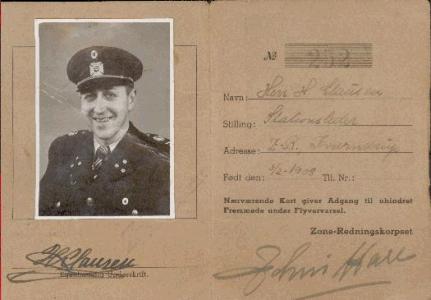 № 252
Navn: Herr H Clausen
Stilling: Stationsleder
Adresse:
Født den: 5/2-1908 Til. Nr.:
Nærværende Kort giver Adgang til uhindret
Fremmøde under Flyvervarsel.
Zone-Redningskorpset
H Clausen
Egenhændig Underskrift.